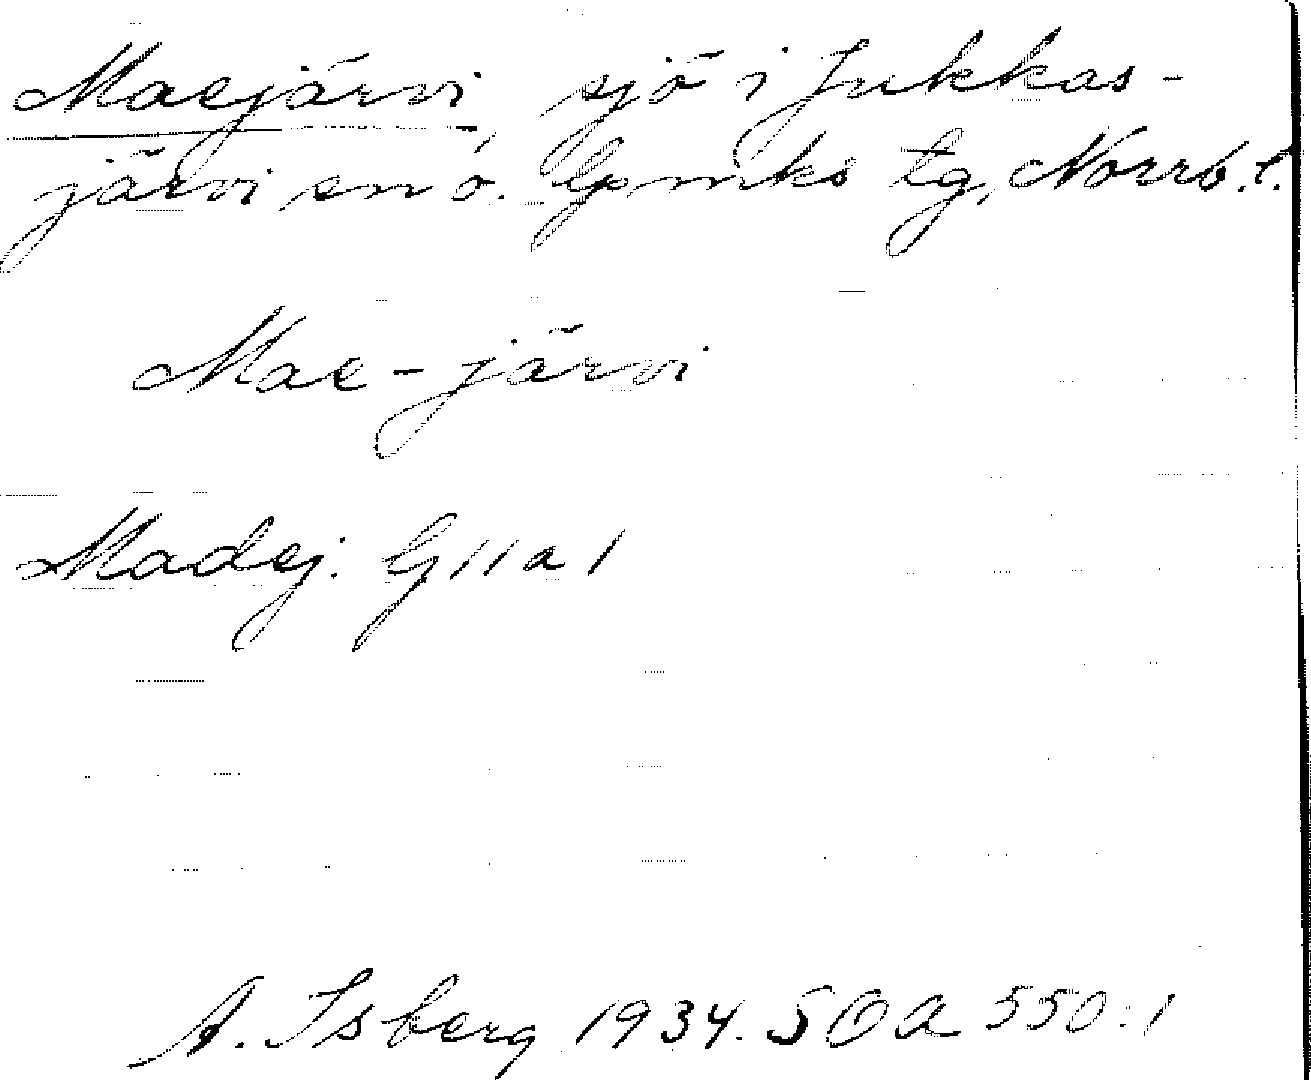 Maejärvi, sjö i Jukkas-
järvi sn o. Gpmks tg, Norrb. l.
Mae-järvi
Madej. G 11 a 1
A. Isberg 1934. SOA 550:1